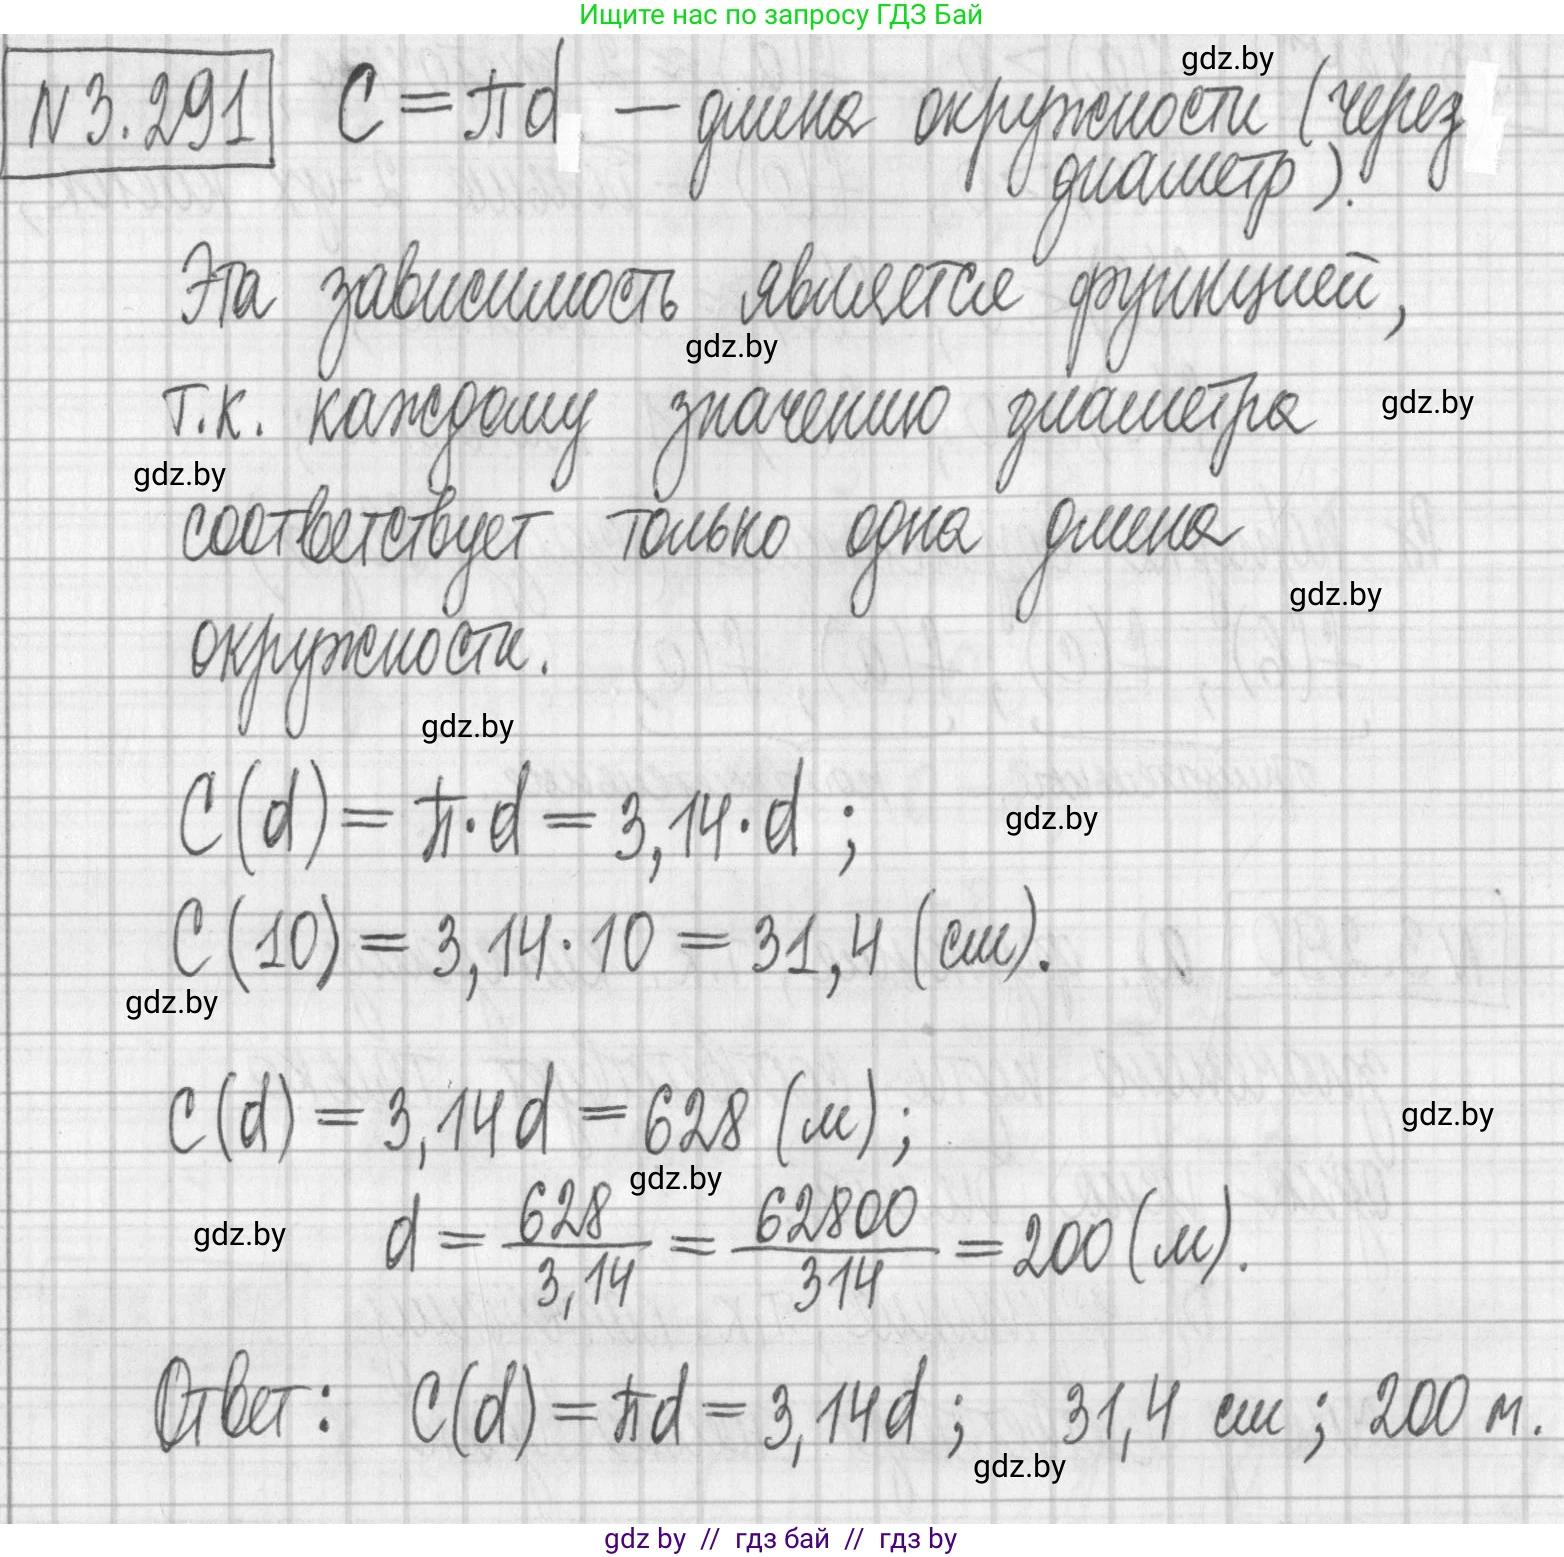 Ищите нас по запросу ГДЗ Бай
gdz.by
N 3.291 C = πd — длина окружности (через
диаметр).
Эта зависимость является функцией,
gdz.by
т.к. каждому значению диаметра
gdz.by
gdz.by
соответствует только одна длина
gdz.by
окружности.
gdz.by
C(d) = π·d = 3,14·d ;
gdz.by
C(10) = 3,14·10 = 31,4 (см).
gdz.by
C(d) = 3,14d = 628 (м) ;
gdz.by
gdz.by
gdz.by
d = 628/3,14 = 62800/314 = 200 (м).
Ответ: C(d) = πd = 3,14d ; 31,4 см ; 200 м.
gdz.by
gdz by // гдз бай // гдз by